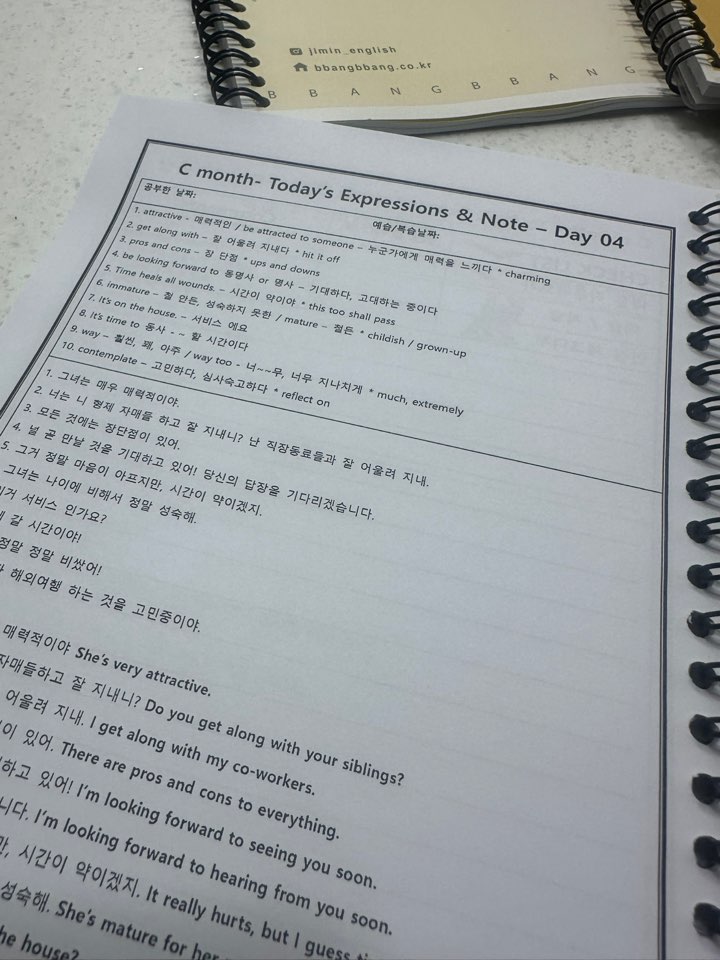 jimin_english
bbangbbang.co.kr
B B A N G B B A N G
C month- Today's Expressions & Note – Day 04
공부한 날짜: 예습/복습날짜:
1. attractive - 매력적인 / be attracted to someone – 누군가에게 매력을 느끼다 * charming
2. get along with – 잘 어울려 지내다 * hit it off
3. pros and cons – 장 단점 * ups and downs
4. be looking forward to 동명사 or 명사 – 기대하다, 고대하는 중이다
5. Time heals all wounds. – 시간이 약이야 * this too shall pass
6. immature – 철 안든, 성숙하지 못한 / mature – 철든 * childish / grown-up
7. It's on the house. – 서비스 에요
8. it's time to 동사 - ~ 할 시간이다
9. way – 훨씬, 꽤, 아주 / way too - 너~~무, 너무 지나치게 * much, extremely
10. contemplate – 고민하다, 심사숙고하다 * reflect on
1. 그녀는 매우 매력적이야.
2. 너는 니 형제 자매들 하고 잘 지내니? 난 직장동료들과 잘 어울려 지내.
3. 모든 것에는 장단점이 있어.
4. 널 곧 만날 것을 기대하고 있어! 당신의 답장을 기다리겠습니다.
5. 그거 정말 마음이 아프지만, 시간이 약이겠지.
그녀는 나이에 비해서 정말 성숙해.
서비스 인가요?
갈 시간이야!
정말 정말 비쌌어!
해외여행 하는 것을 고민중이야.
매력적이야 She's very attractive.
자매들하고 잘 지내니? Do you get along with your siblings?
어울려 지내. I get along with my co-workers.
있어. There are pros and cons to everything.
하고 있어! I'm looking forward to seeing you soon.
I'm looking forward to hearing from you soon.
시간이 약이겠지. It really hurts, but I guess
성숙해. She's mature for her
the house?